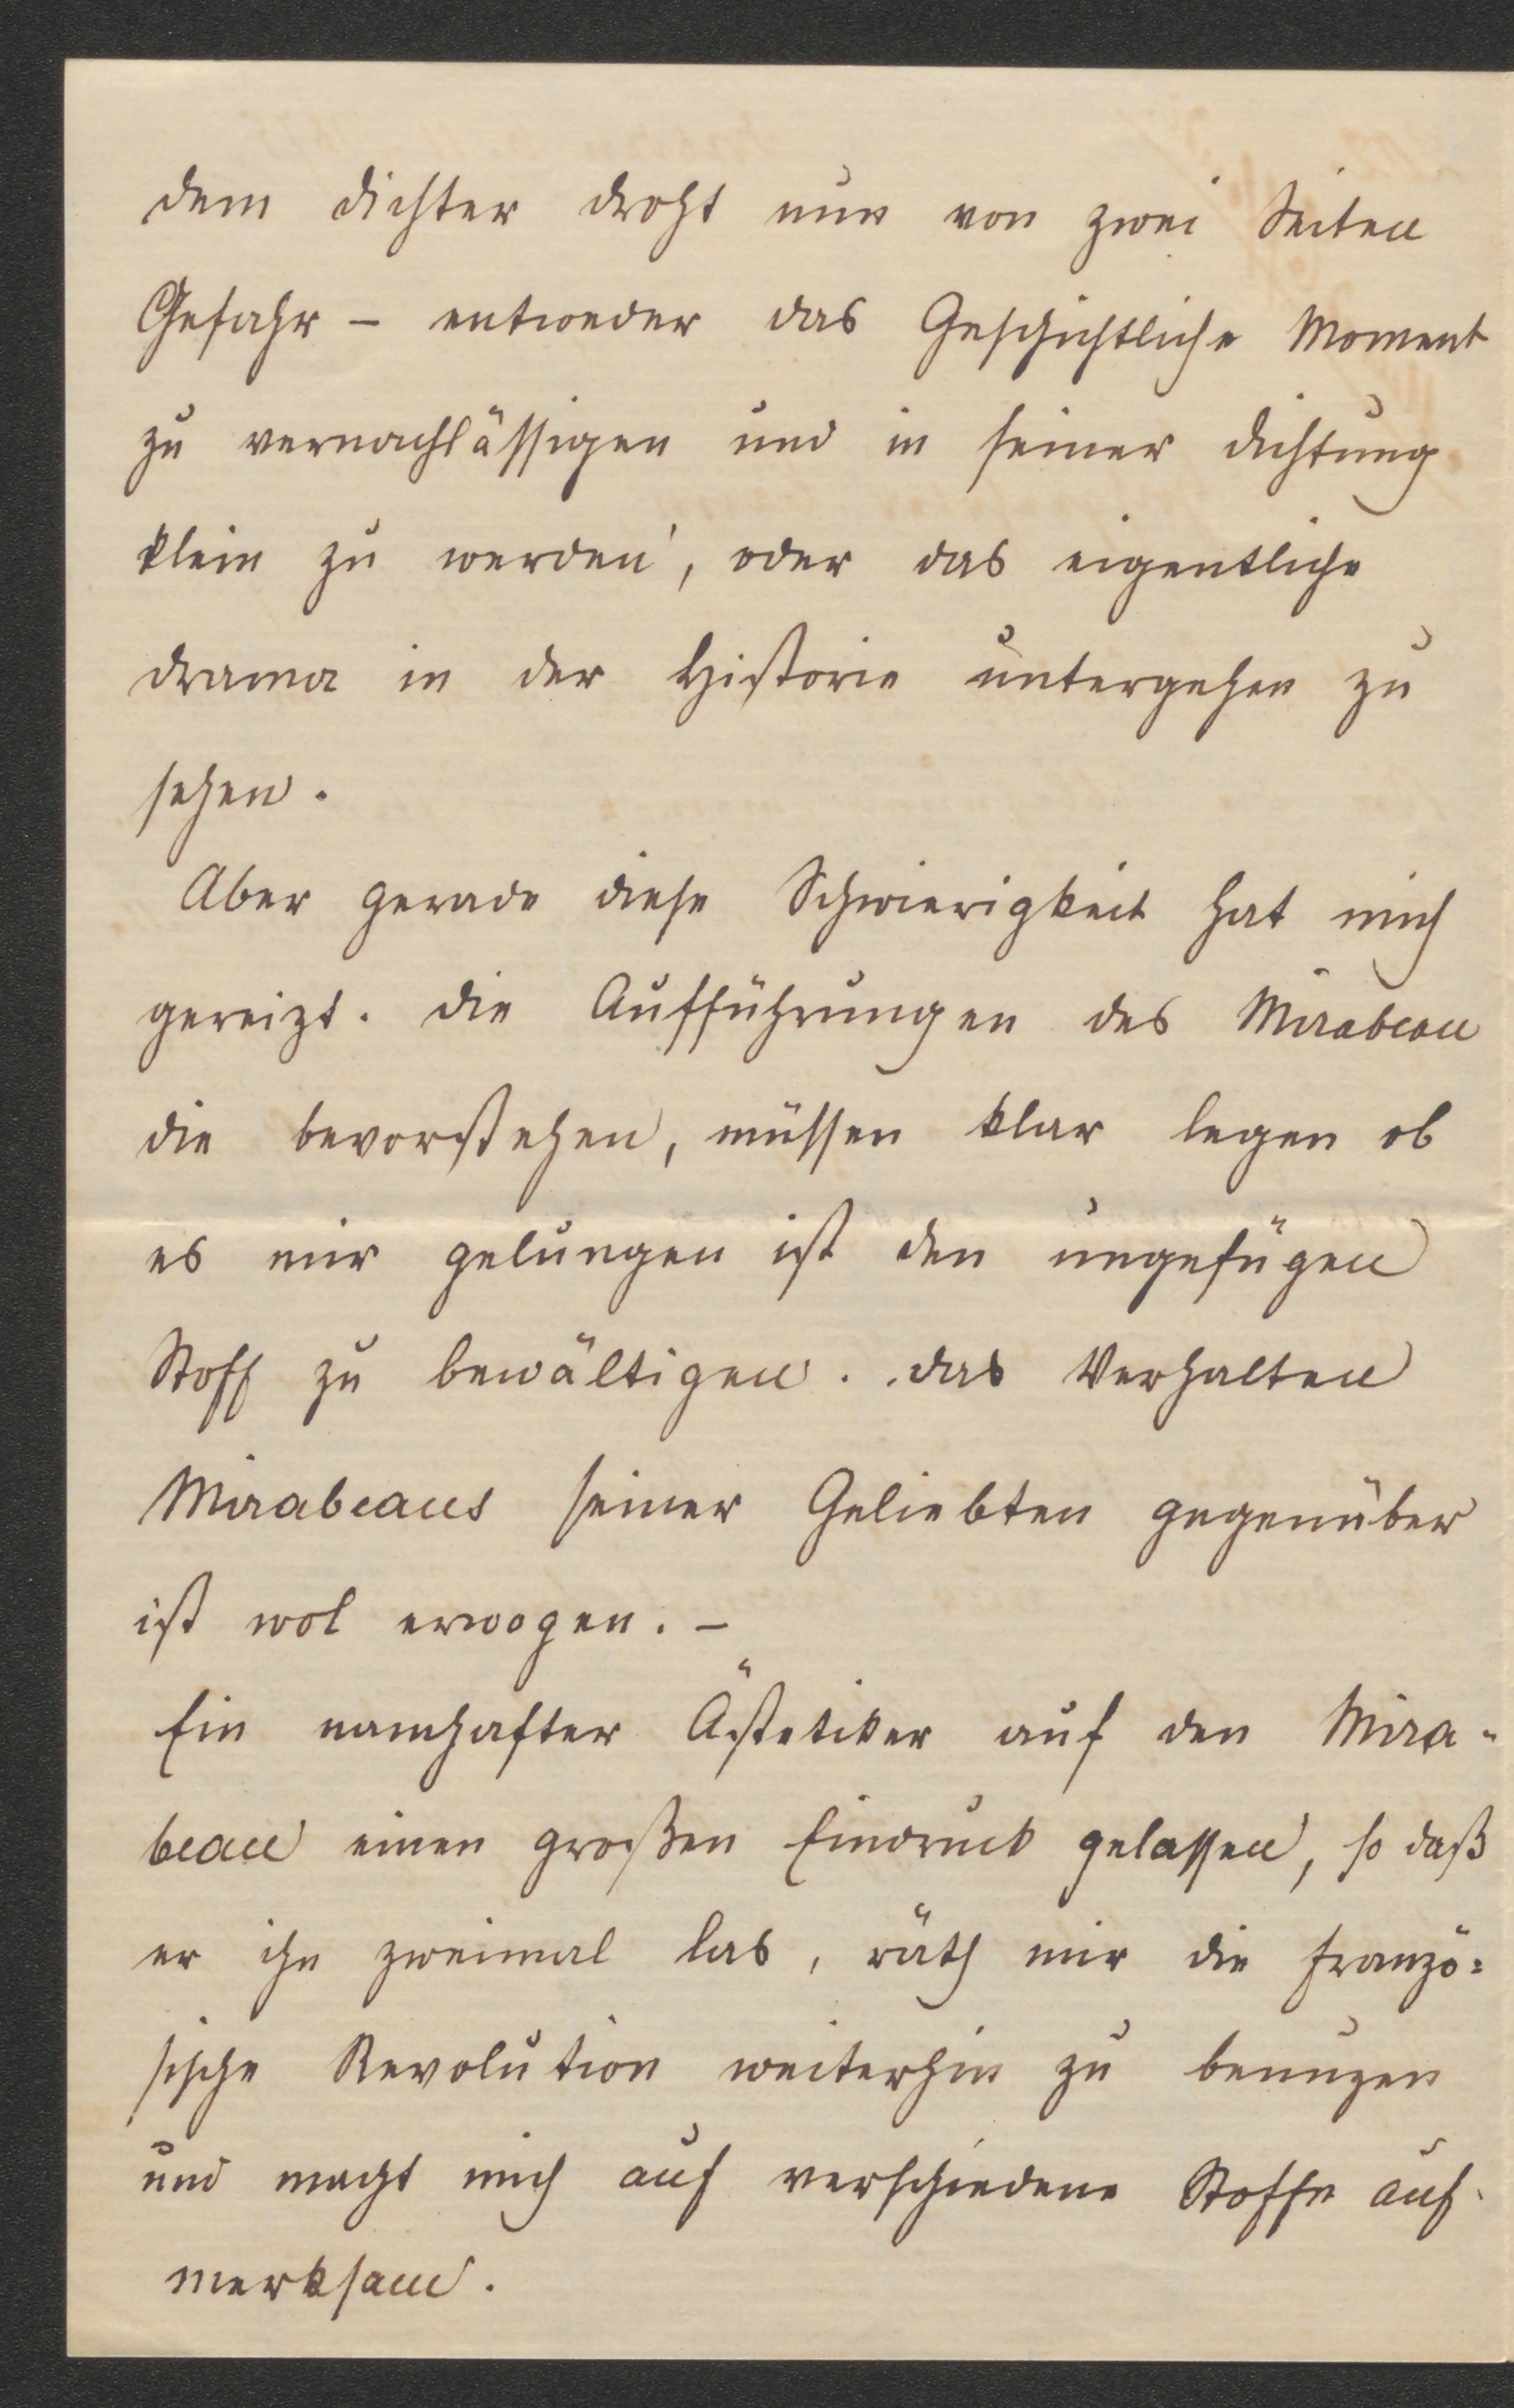 dem Dichter droht nun von zwei Seiten
Gefahr – entweder das Geschichtliche Moment
zu vernachlässigen und in seiner Dichtung
klein zu werden, oder das eigentliche
Drama in der Historie untergehen zu
sehen.
Aber gerade diese Schwierigkeit hat mich
gereizt. Die Aufführungen des Mirabeau
die bevorstehen, müssen klar legen ob
es mir gelungen ist den ungefügen
Stoff zu bewältigen. Das Verhalten
Mirabeaus seiner Geliebten gegenüber
ist wol erwogen. –
Ein namhafter Ästetiker auf den Mira-
beau einen großen Eindruck gelassen, so daß
er ihn zweimal las, räth mir die franzö=
sische Revolution weiterhin zu benuzen
und macht mich auf verschiedene Stoffe auf-
merksam.